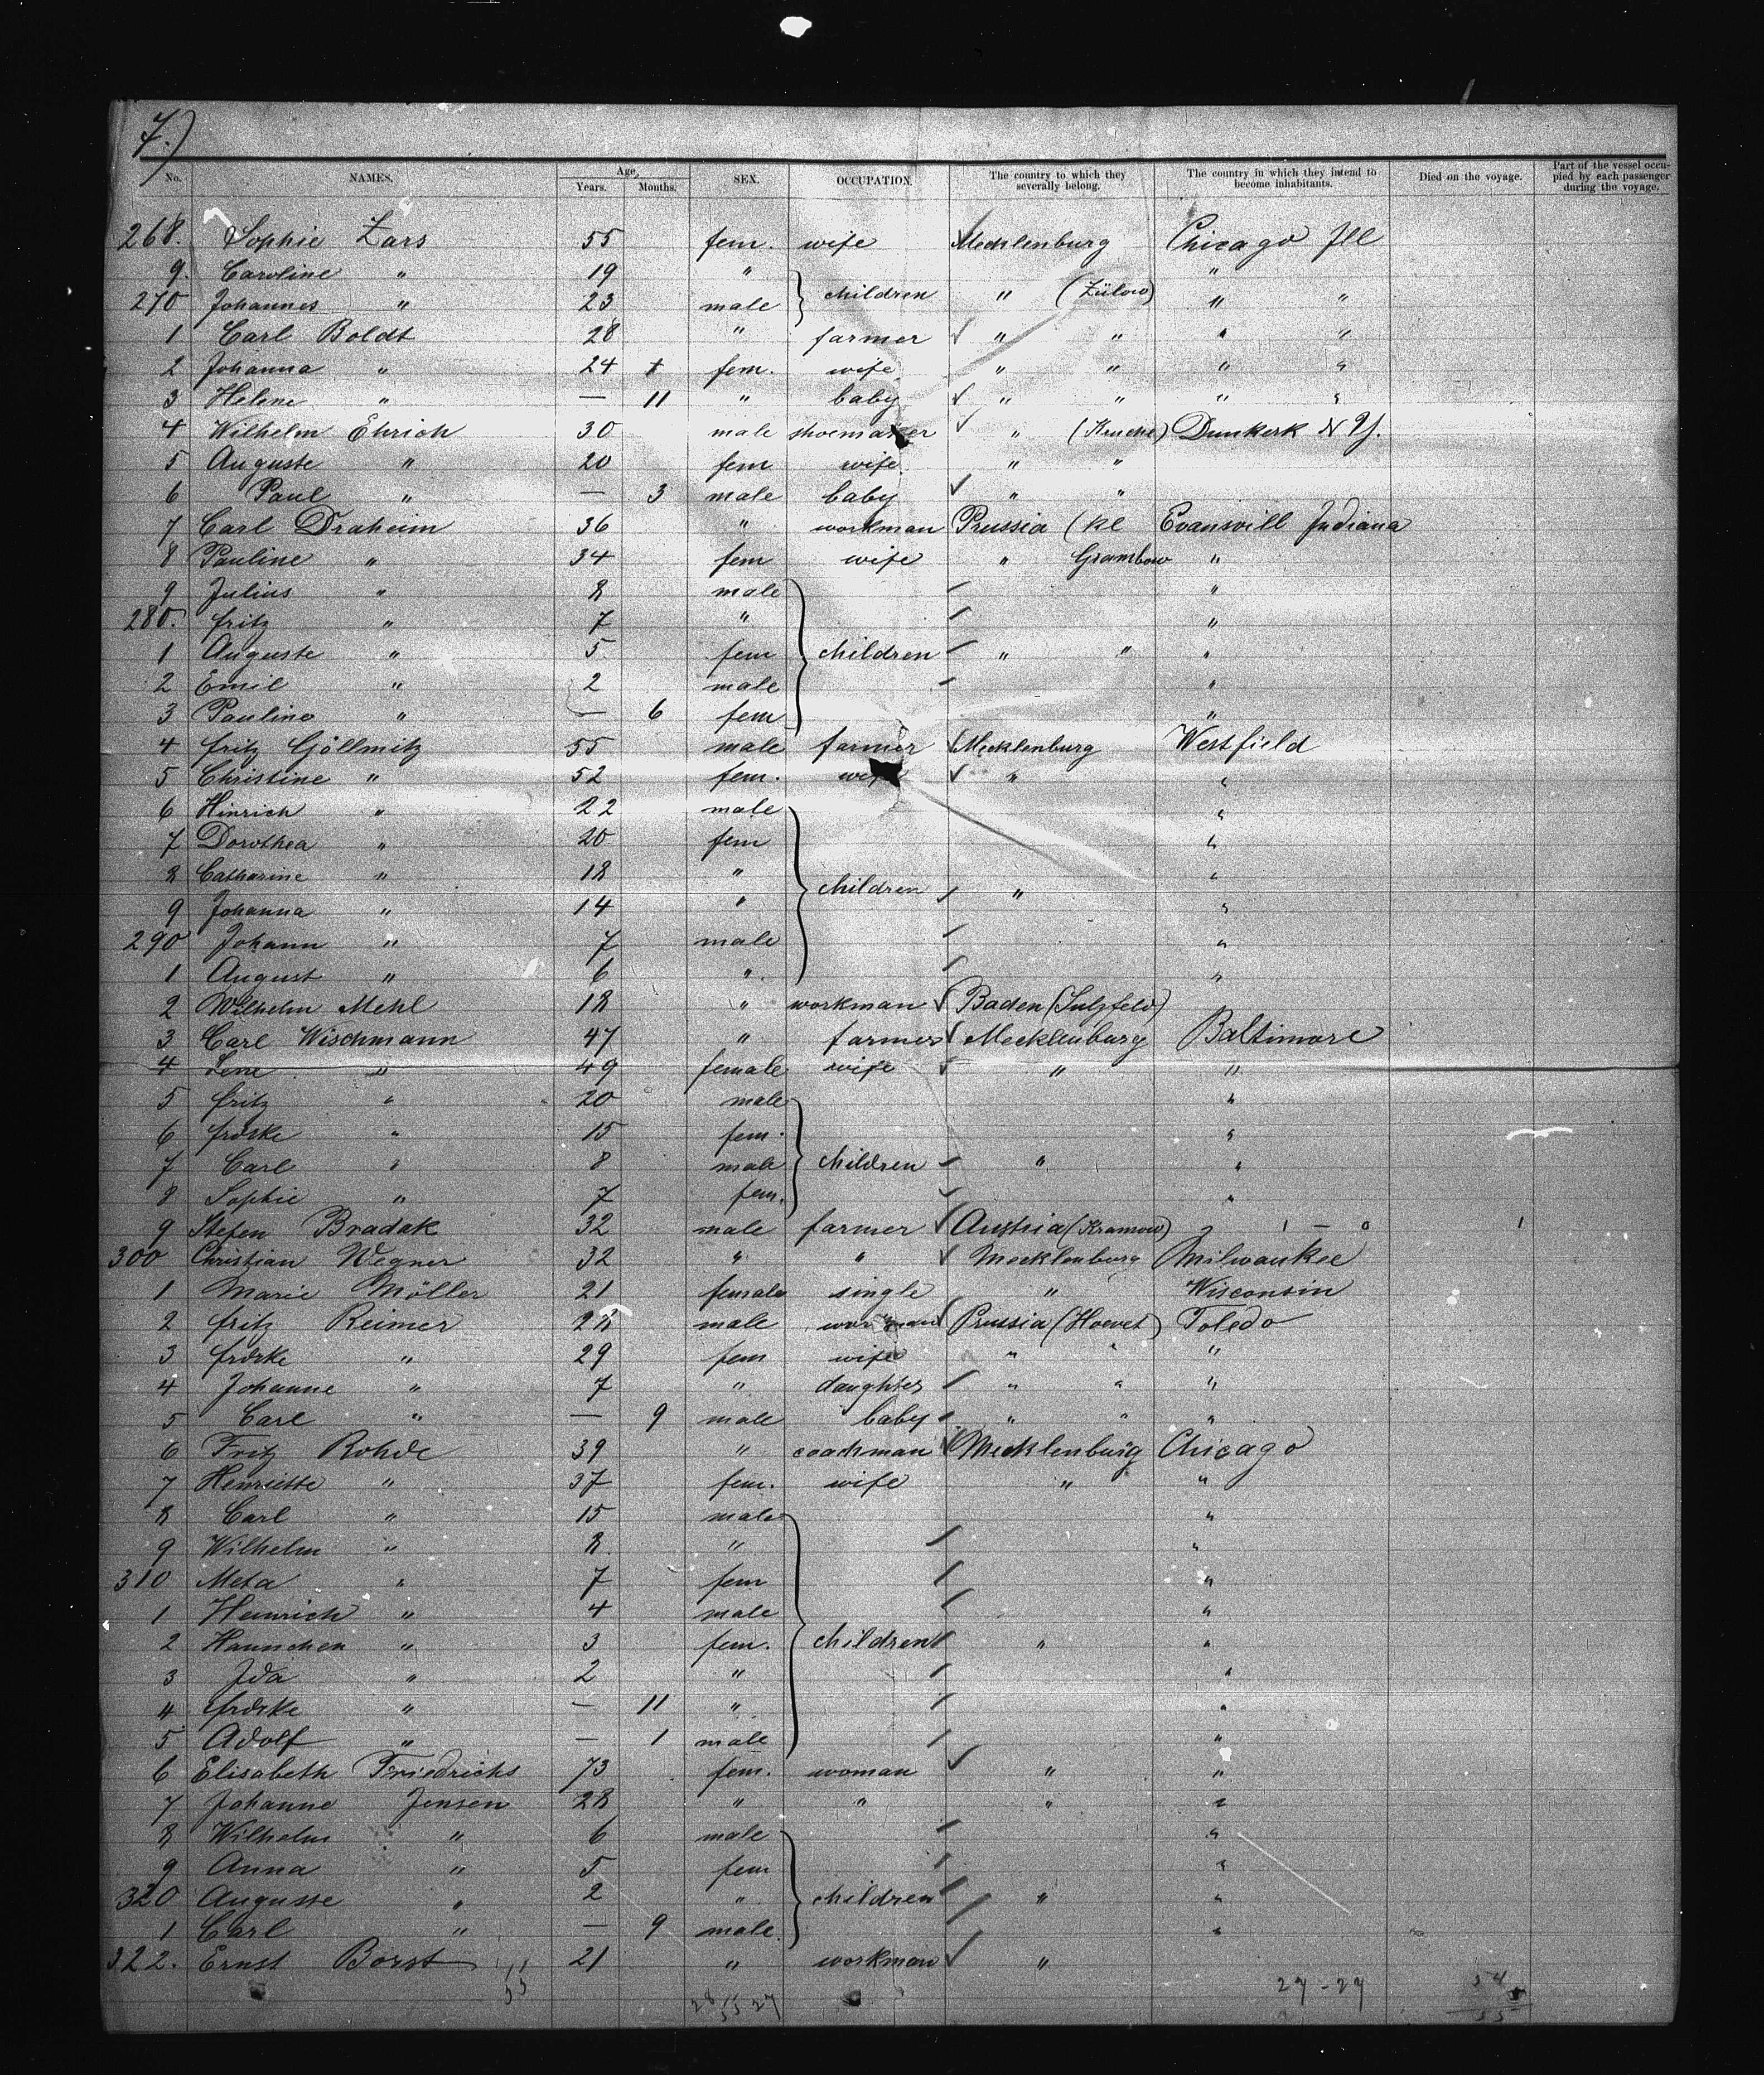 7.)
No. NAMES. Age, Years. Months. SEX. OCCUPATION. The country to which they severally belong. The country in which they intend to become inhabitants. Died on the voyage. Part of the vessel occupied by each passenger during the voyage.
268. Sophie Zars 55 fem. wife Mecklenburg Chicago Ill
9. Caroline " 19 " "
270 Johannes " 23 male children " (Zülow) " "
1 Carl Boldt 28 " farmer " " " "
2 Johanna " 24 fem. wife " " " "
3 Helene " — 11 " baby " " " "
4 Wilhelm Ehrich 30 male shoemaker " Dunkerk N Y.
5 Auguste " 20 fem wife " "
6 Paul " — 3 male baby " "
7 Carl Draheim 36 " workman Prussia (kl Evansvill Indiana
8 Pauline " 34 fem wife " Grambow "
9 Julius " 8 male "
280. fritz " 7 " "
1 Auguste " 5 fem children " " "
2 Emil " 2 male "
3 Pauline " — 6 fem "
4 fritz Göllmitz 55 male farmer Mecklenburg Westfield
5 Christine " 52 fem. wife " "
6 Hinrich " 22 male "
7 Dorothea " 20 fem "
8 Catharine " 18 " "
9 Johanna " 14 " children " "
290 Johann " 7 male "
1 August " 6 " "
2 Wilhelm Mehl 18 " workman Baden (Sulzfeld)
3 Carl Wischmann 47 " farmer Mecklenburg Baltimore
4 Lene " 49 female wife " "
5 fritz " 20 male "
6 frdrke " 15 fem. "
7 Carl " 8 male children " "
8 Sophie " 7 fem. "
9 Stefen Bradak 32 male farmer Austria (Kramow)
300 Christian Wegner 32 " " Mecklenburg Milwaukee
1 Marie Möller 21 female single " Wisconsin
2 fritz Reimer 28 male workman Prussia (Hoevet) Toledo
3 frdrke " 29 fem wife " " "
4 Johanne " 7 " daughter " " "
5 Carl " — 9 male baby " " "
6 Fritz Rohde 39 " coachman Mecklenburg Chicago
7 Henriette " 37 fem. wife " "
8 Carl " 15 male "
9 Wilhelm " 8. " "
310 Meta " 7 fem "
1 Heinrich " 4 male "
2 Hannchen " 3 fem. children " "
3 Ida " 2 " "
4 frdrke " — 11 " "
5 Adolf " — 1 male "
6 Elisabeth Friedrichs 73 fem. woman " "
7 Johanne Jensen 28 " " " "
8 Wilhelm " 6 male "
9 Anna " 5 fem "
320 Auguste " 2 " children " "
1 Carl " — 9 male. "
322. Ernst Borst 21 " workman "
28 27 27 - 27